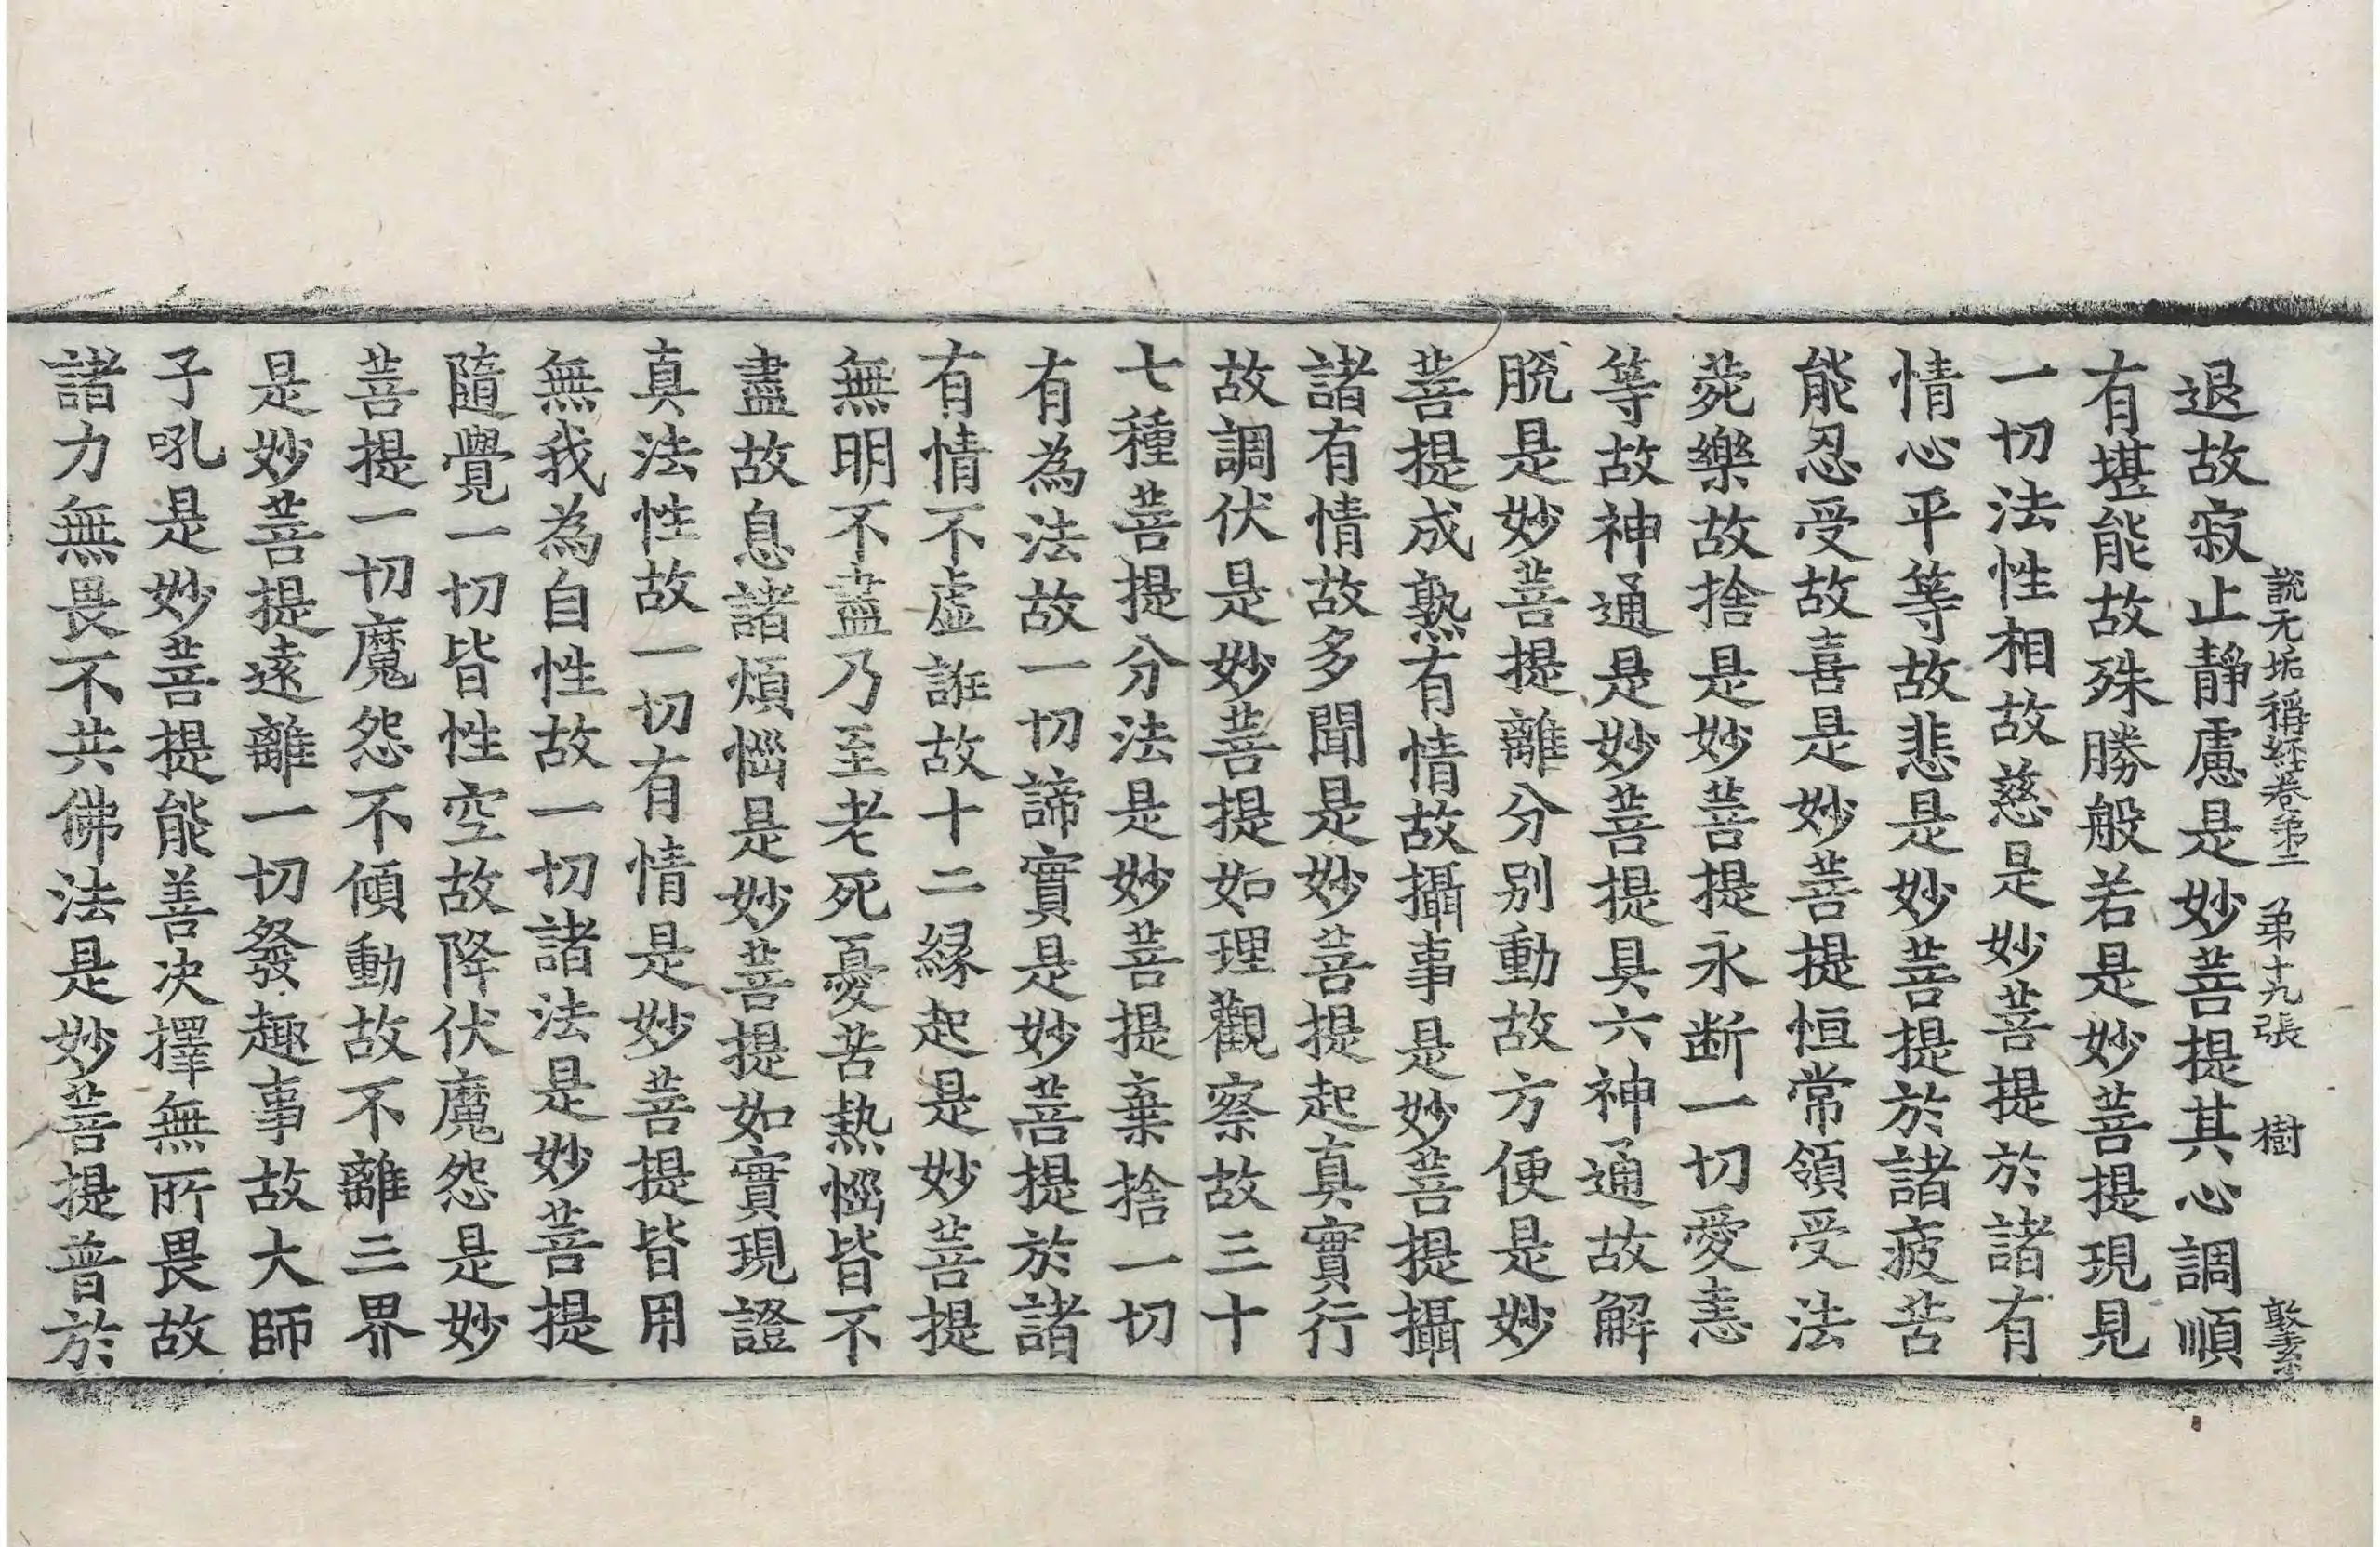 說无垢稱経卷弟二 弟十九張 樹
退故寂止靜慮是妙菩提其心調順
有堪能故殊勝般若是妙菩提現見
一切法性相故慈是妙菩提於諸有
情心平等故悲是妙菩提於諸疲苦
能忍受故喜是妙菩提恒常領受法
菀樂故捨是妙菩提永断一切愛恚
等故神通是妙菩提具六神通故解
脫是妙菩提離分别動故方便是妙
菩提成熟有情故攝事是妙菩提攝
諸有情故多聞是妙菩提起真實行
故調伏是妙菩提如理觀察故三十
七種菩提分法是妙菩提棄捨一切
有為法故一切諦實是妙菩提於諸
有情不虛誑故十二緣起是妙菩提
無明不盡乃至老死憂苦熱惱皆不
盡故息諸煩惱是妙菩提如實現證
真法性故一切有情是妙菩提皆用
無我為自性故一切諸法是妙菩提
隨覺一切皆性空故降伏魔怨是妙
菩提一切魔怨不傾動故不離三界
是妙菩提遠離一切發趣事故大師
子吼是妙菩提能善决擇無所畏故
諸力無畏不共佛法是妙菩提普於